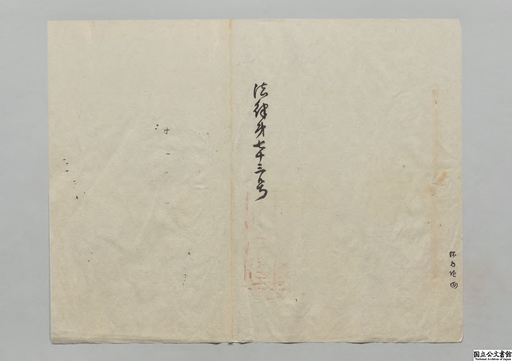 法律第七十三号
国立公文書館
National Archives of Japan